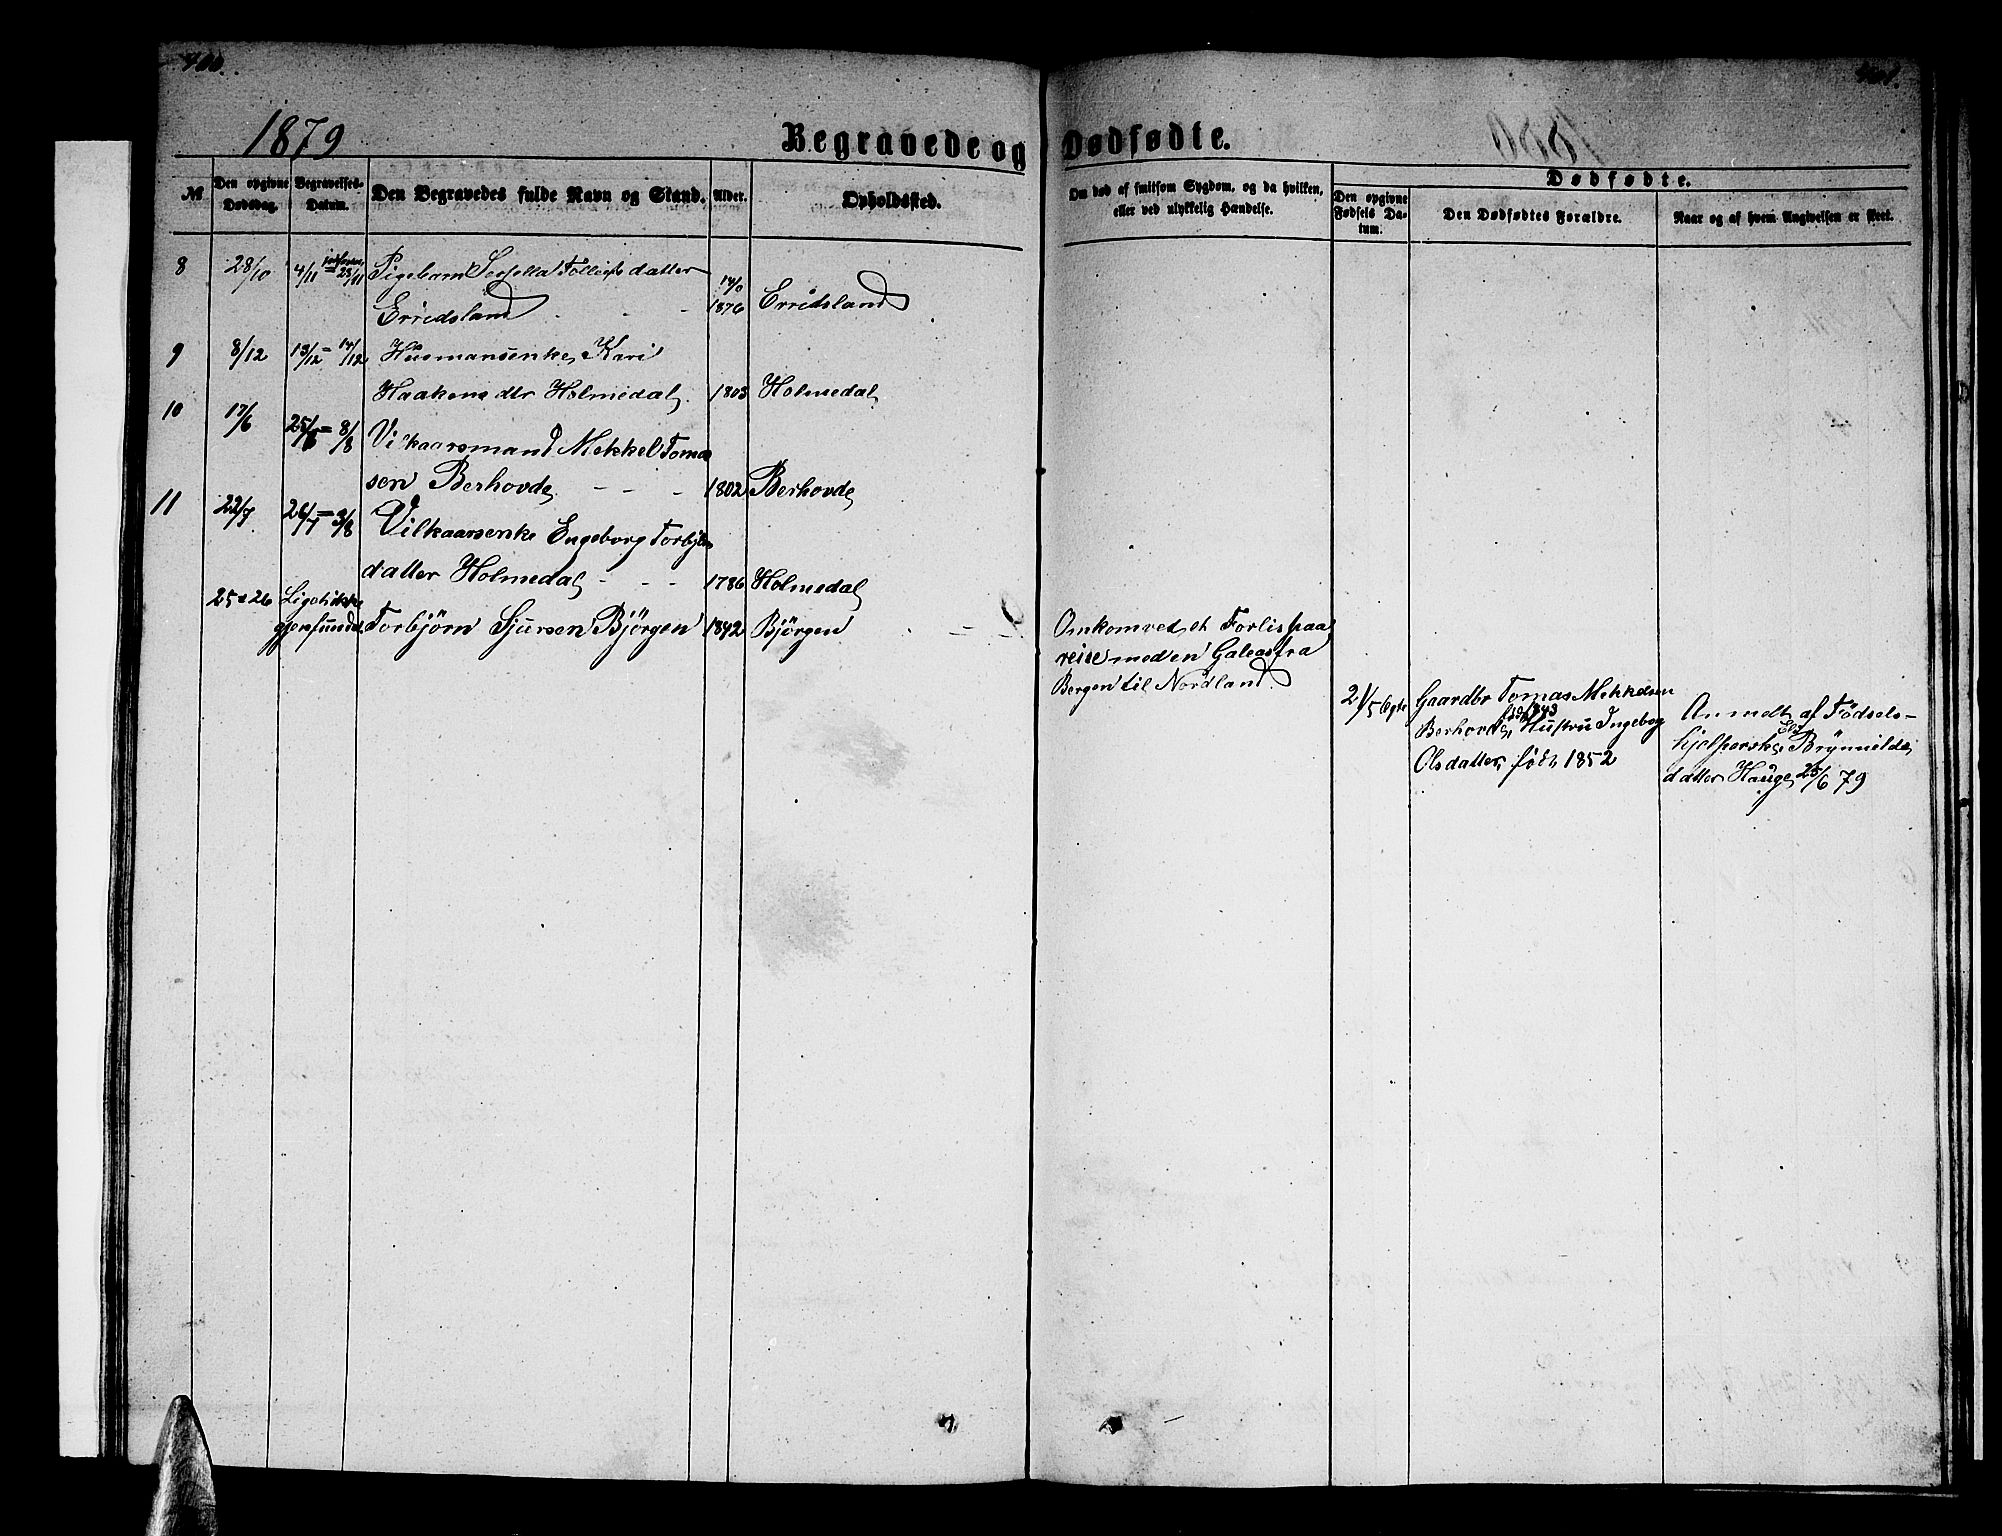 400.
401.
1879
Begravede og Dødfødte.
№
Den opgivne Dødsdag.
Begravelses-Datum.
Den Begravedes fulde Navn og Stand.
Alder.
Opholdssted.
Om død af smitsom Sygdom, og da hvilken, eller ved ulykkelig Hændelse.
Dødfødte.
Den opgivne Fødsels Datum.
Den Dødfødtes Forældre.
Naar og af hvem Angivelsen er skeet.
8 28/10 4/11 = 23/11 Pigebarn datter
Erridsland 1876 Erridsland
9 8/12 13/12 = 14/12 Husmansenke Kari
Haakens dtr Holmedal 1803 Holmedal
10 17/6 25/6 = 8/8 Vilkaarsmand Mekkel Tomas
sen Berhovde - - - 1802 Berhovde
11 22/7 26/7 = 3/8 Vilkaarsenke Engeborg Torbjörns
datter Holmedal - - - 1786 Holmedal
25 = 26 Liget ikke
gjenfundet Torbjörn Sjursen Björgen 1842 Björgen
Omkom ved et Forlis paa
reise med en Galeas fra
Bergen til Nordland
21/5 Egte Gaardbr Tomas Mekkelsen
Berhovde, født 1843 Hustru Ingeborg
Olsdatter, född 1852
Anmeldt af Födsels-
hjelperske Brynnilds
datter Hauge 25/6 79